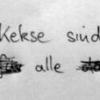 Kekse sind
alle